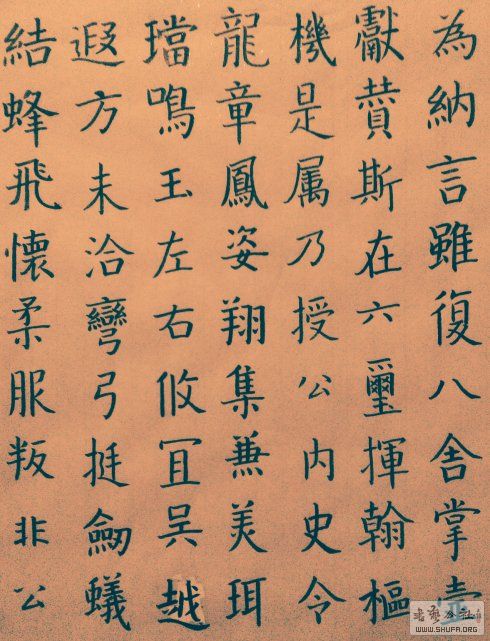 為納言雖復八舍掌
獻賛斯在六璽揮翰樞
機是属乃授公内史令
龍章鳳姿翔集兼美珥
璫鳴玉左右攸冝吴越
遐方未洽彎弓挺劒蟻
結蜂飛懷柔服叛非公
书艺公社
WWW.SHUFA.ORG